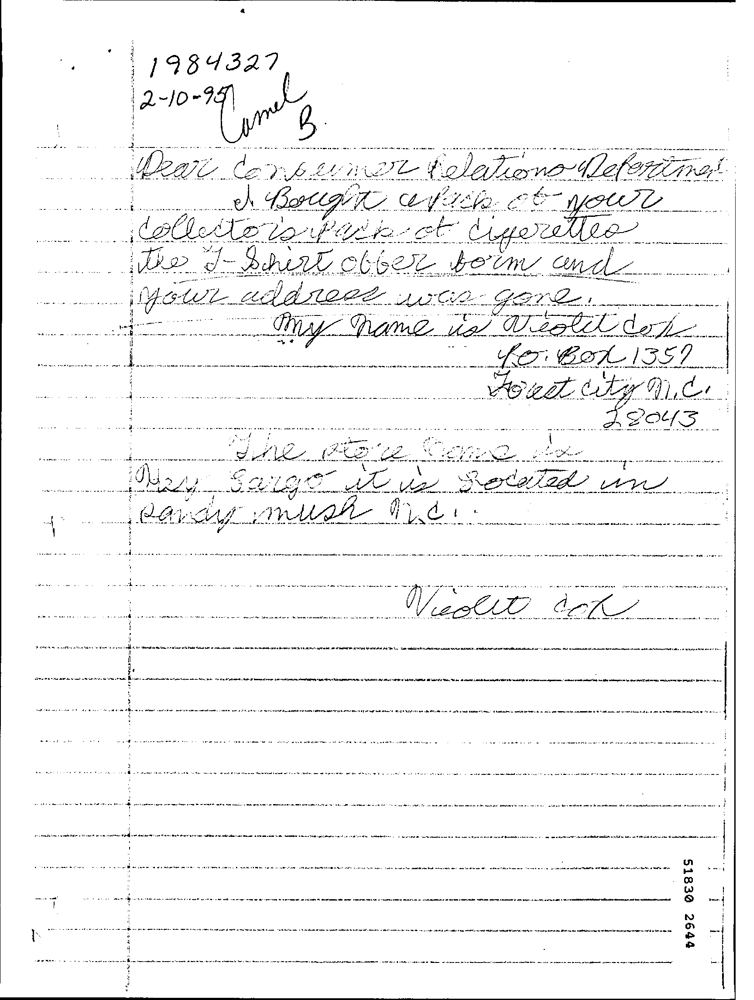 1984327
2-10-95
Camel
B
Dear Consumer Relations Departmen
I Bought a Pack of your
Collector's Pack of Cigerettes
the T-Shirt offer form and
your address was gone.
My name is Vieolet Cox
P.O. Box 1357
Forest City N.C.
28043
The store name is
Hey Sargo it is Located in
Sandy mush N.C..
Vieolet Cox
51830 2644